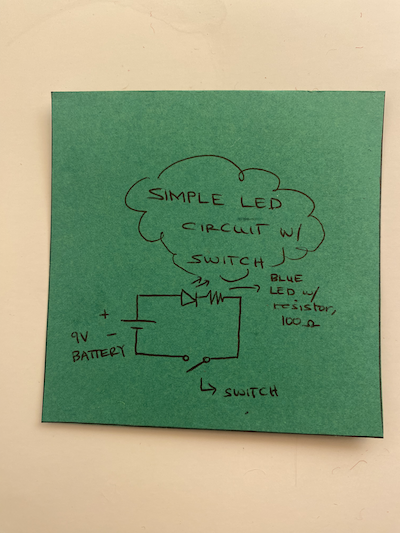 SIMPLE LED
CIRCUIT W/
SWITCH
BLUE
LED W/
resistor,
100Ω
+
-
9V
BATTERY
SWITCH